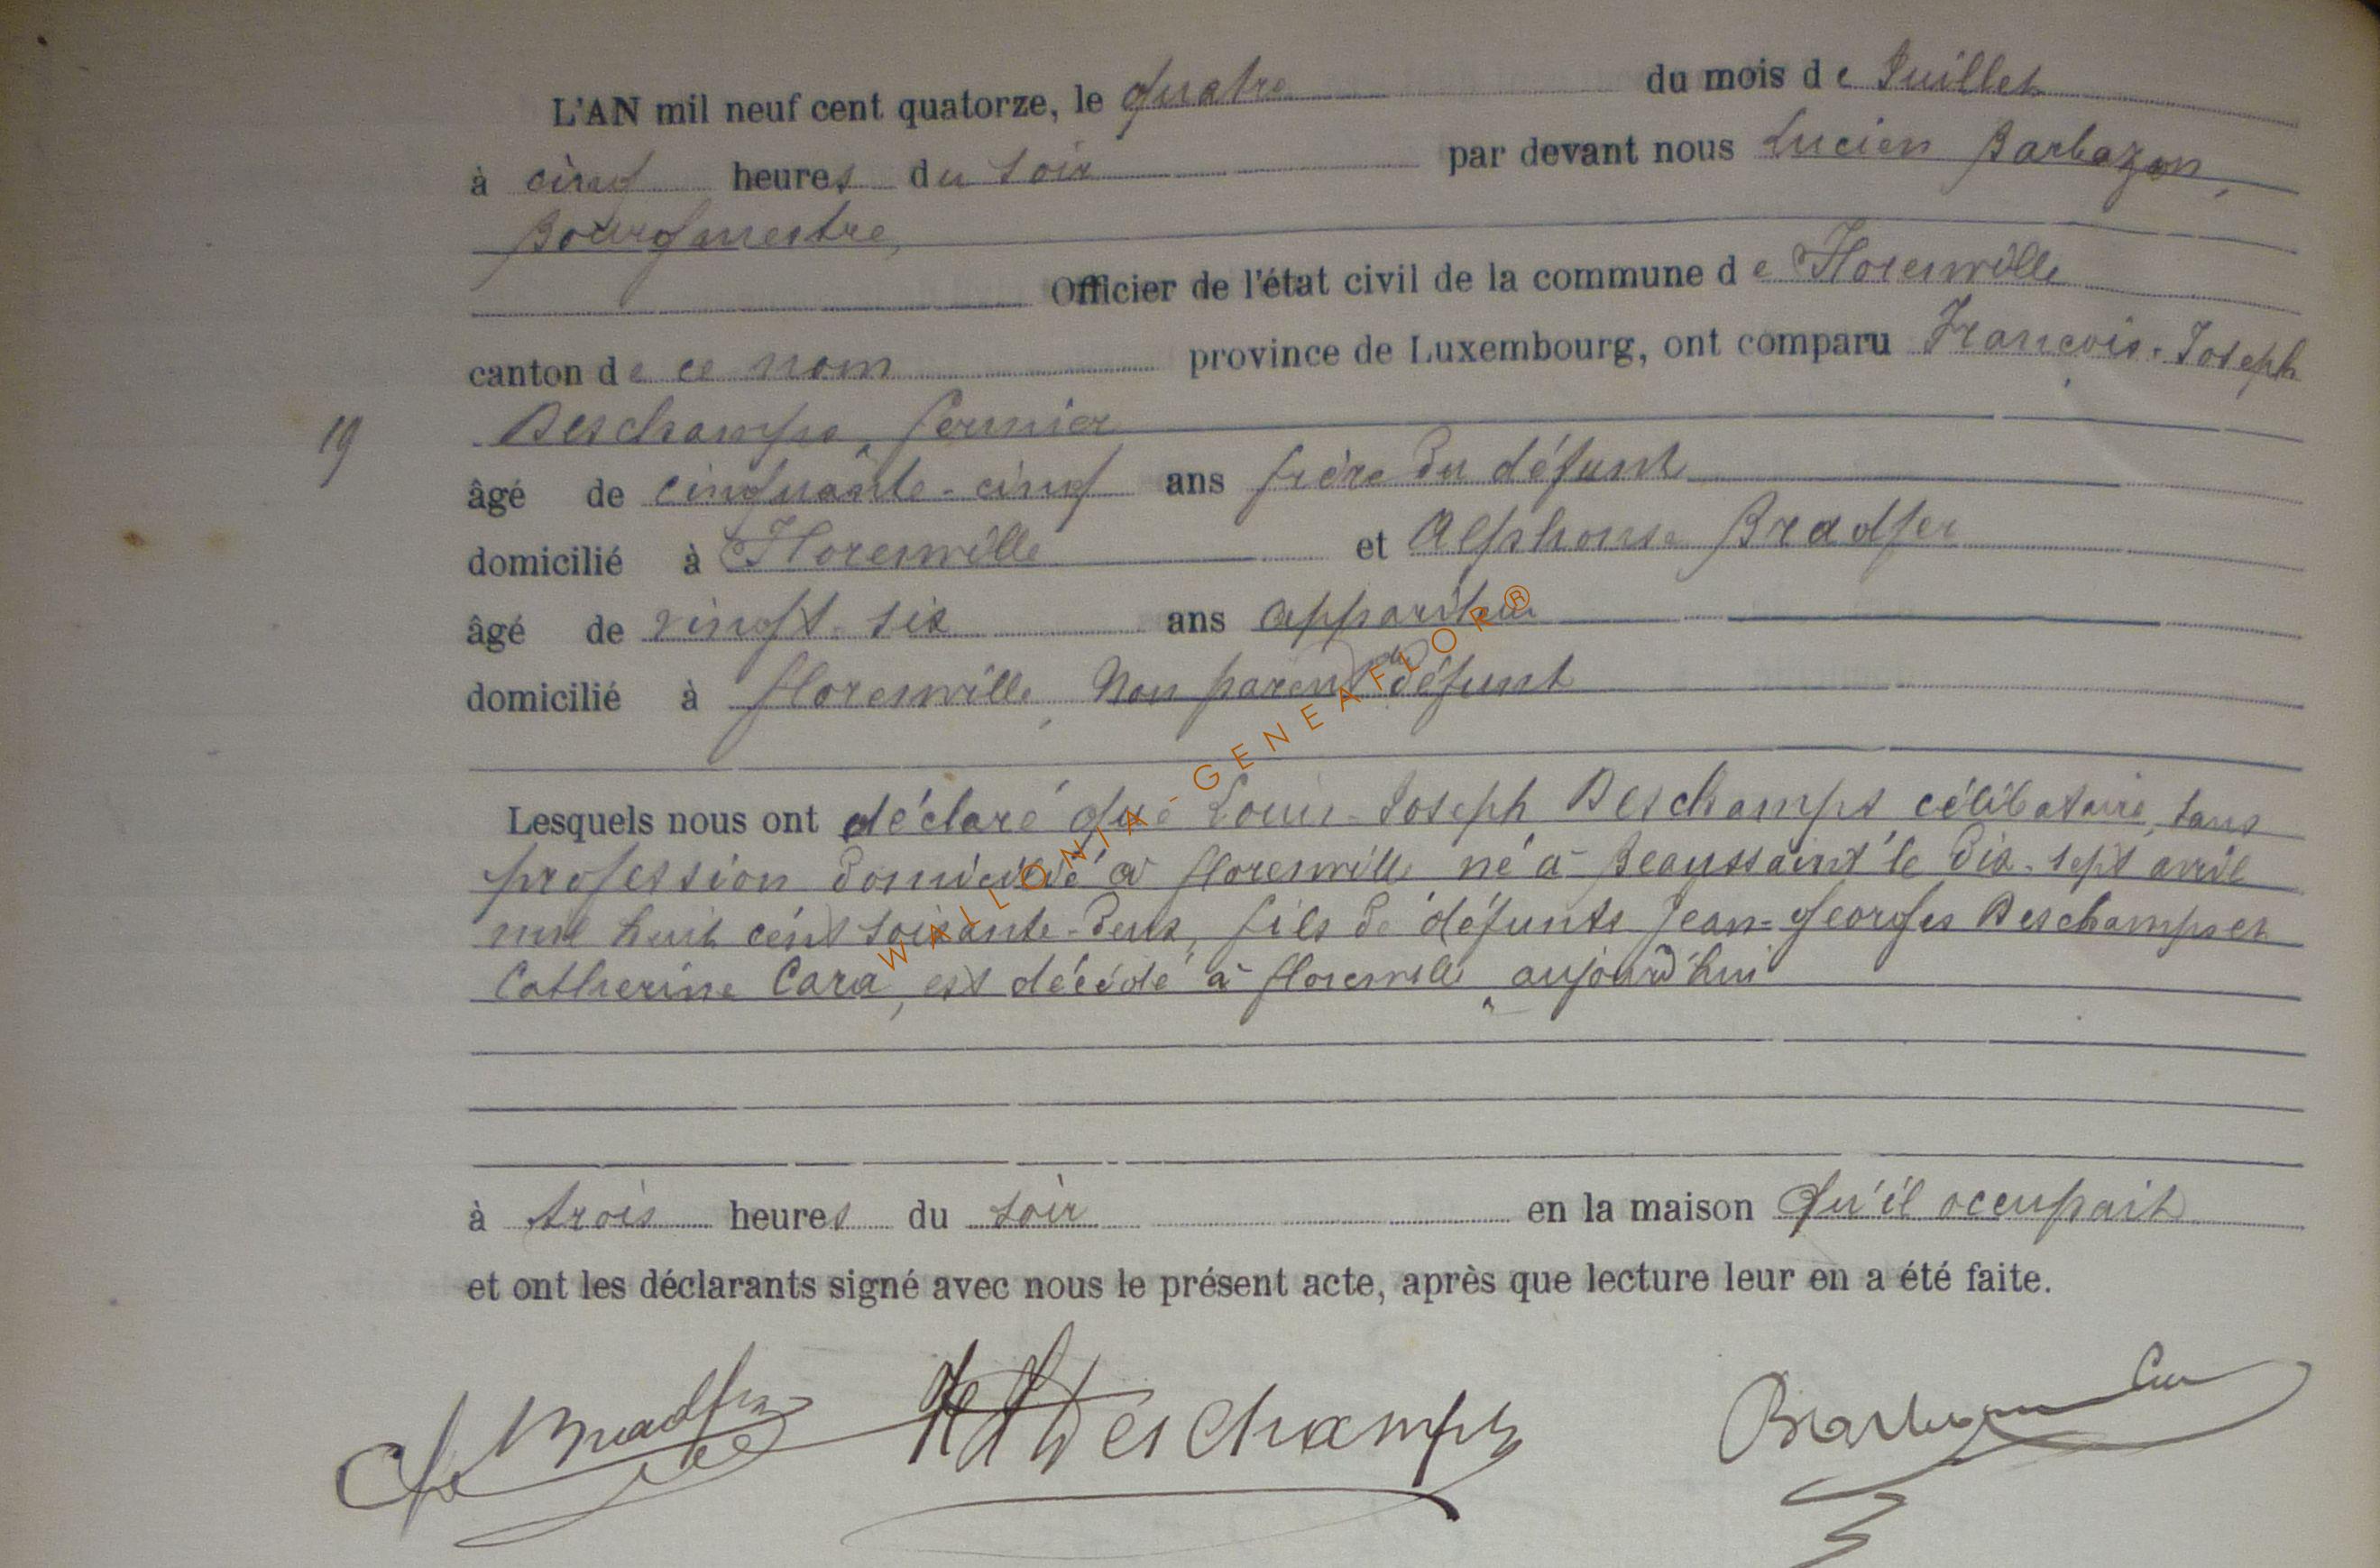 L'AN mil neuf cent quatorze, le quatre du mois de Juillet
à cinq heures du soir par devant nous Lucien Barbazon,
Bourgmestre,
Officier de l'état civil de la commune de Florenville
canton de ce nom province de Luxembourg, ont comparu François-Joseph
19
Deschamps, fermier
âgé de cinquante-cinq ans frère du défunt
domicilié à Florenville et Alphonse Bradfer
âgé de vingt-six ans appariteur
domicilié à Florenville, Non parent du défunt
Lesquels nous ont déclaré que Louis-Joseph Deschamps célibataire, sans
profession domicilié à Florenville né à Beaussaint le dix-sept avril
mil huit cent soixante-deux, fils de défunts Jean-Georges Deschamps et
Catherine Cara, est décédé à Florenville, aujourd'hui
à trois heures du soir en la maison qu'il occupait
et ont les déclarants signé avec nous le présent acte, après que lecture leur en a été faite.
Bradfer Deschamps Barbazon
WALLONIA-GENEAFLOR®